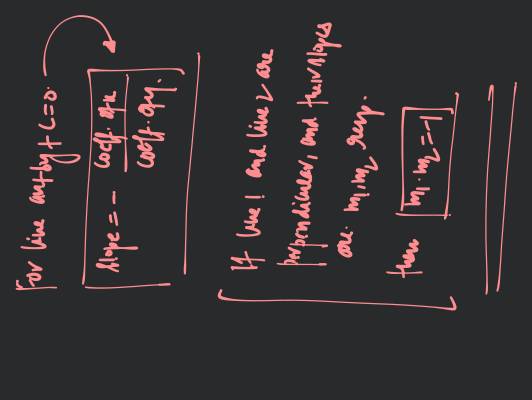 For line ax+by+c=0
slope = - coeff. of x
coeff. of y.
If line 1 and line 2 are
perpendicular, and their slopes
are m1, m2 resp.
then m1 . m2 = -1